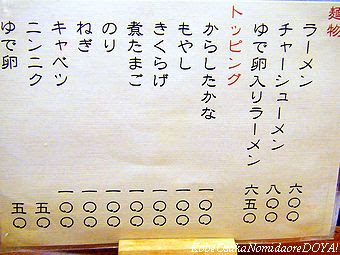 麺物
ラーメン 六〇〇
チャーシューメン 八〇〇
ゆで卵入りラーメン 六五〇
トッピング
からしたかな 一〇〇
もやし 一〇〇
きくらげ 一〇〇
煮たまご 一〇〇
のり 一〇〇
ねぎ 一〇〇
キャベツ 一〇〇
ニンニク 五〇
ゆで卵 五〇
KobeOsakaNomidaoreDOYA!